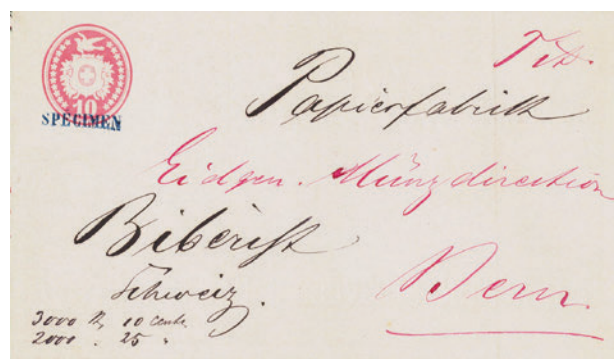 10
SPECIMEN
Tit.
Papierfabrik
Eidgen. Münzdirection
Biberist
Schweiz.
Bern.
3000 10 Cents.
2000 . 25 "